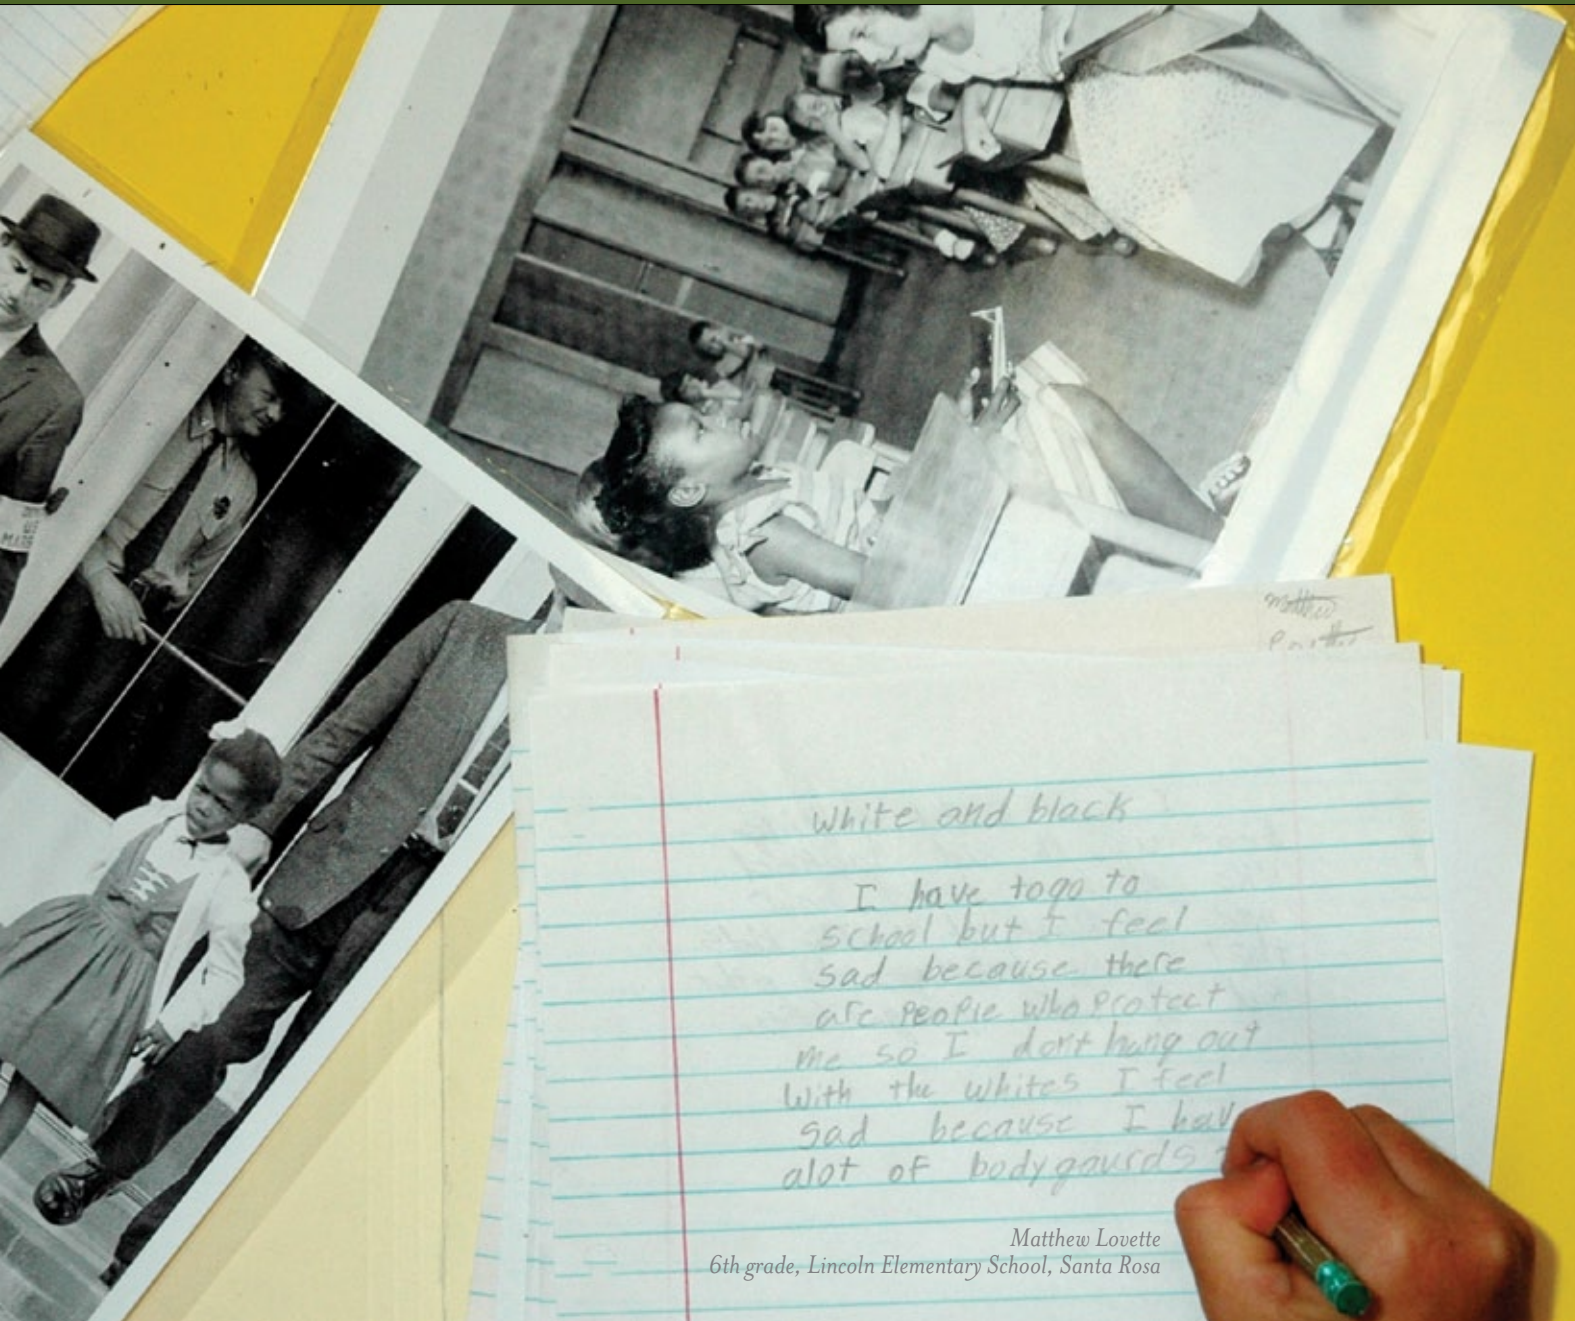 Matthew
White and black
I have togo to
school but I feel
sad because there
are people who protect
me so I dont hang out
with the whites I feel
sad because I hav
alot of bodygaurds
Matthew Lovette
6th grade, Lincoln Elementary School, Santa Rosa